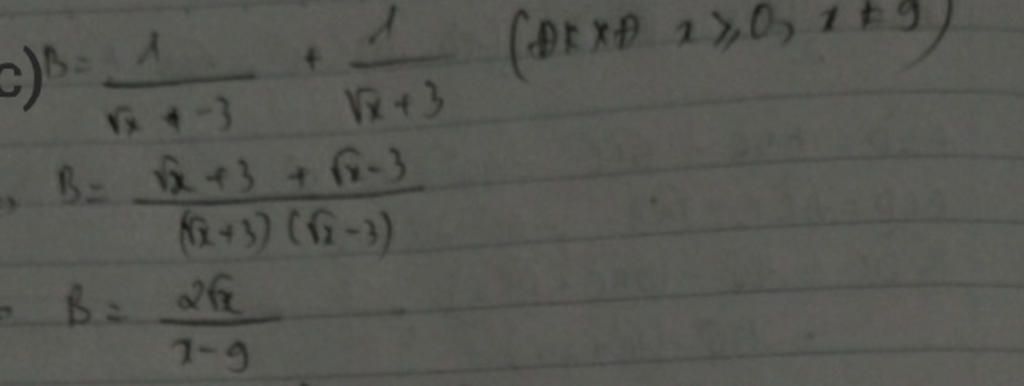 c) B = 1/(√x + -3) + 1/(√x + 3) (ĐKXĐ x ≥ 0, x ≠ 9)
B = (√x + 3 + √x - 3)/((√x + 3)(√x - 3))
B = 2√x/(x - 9)